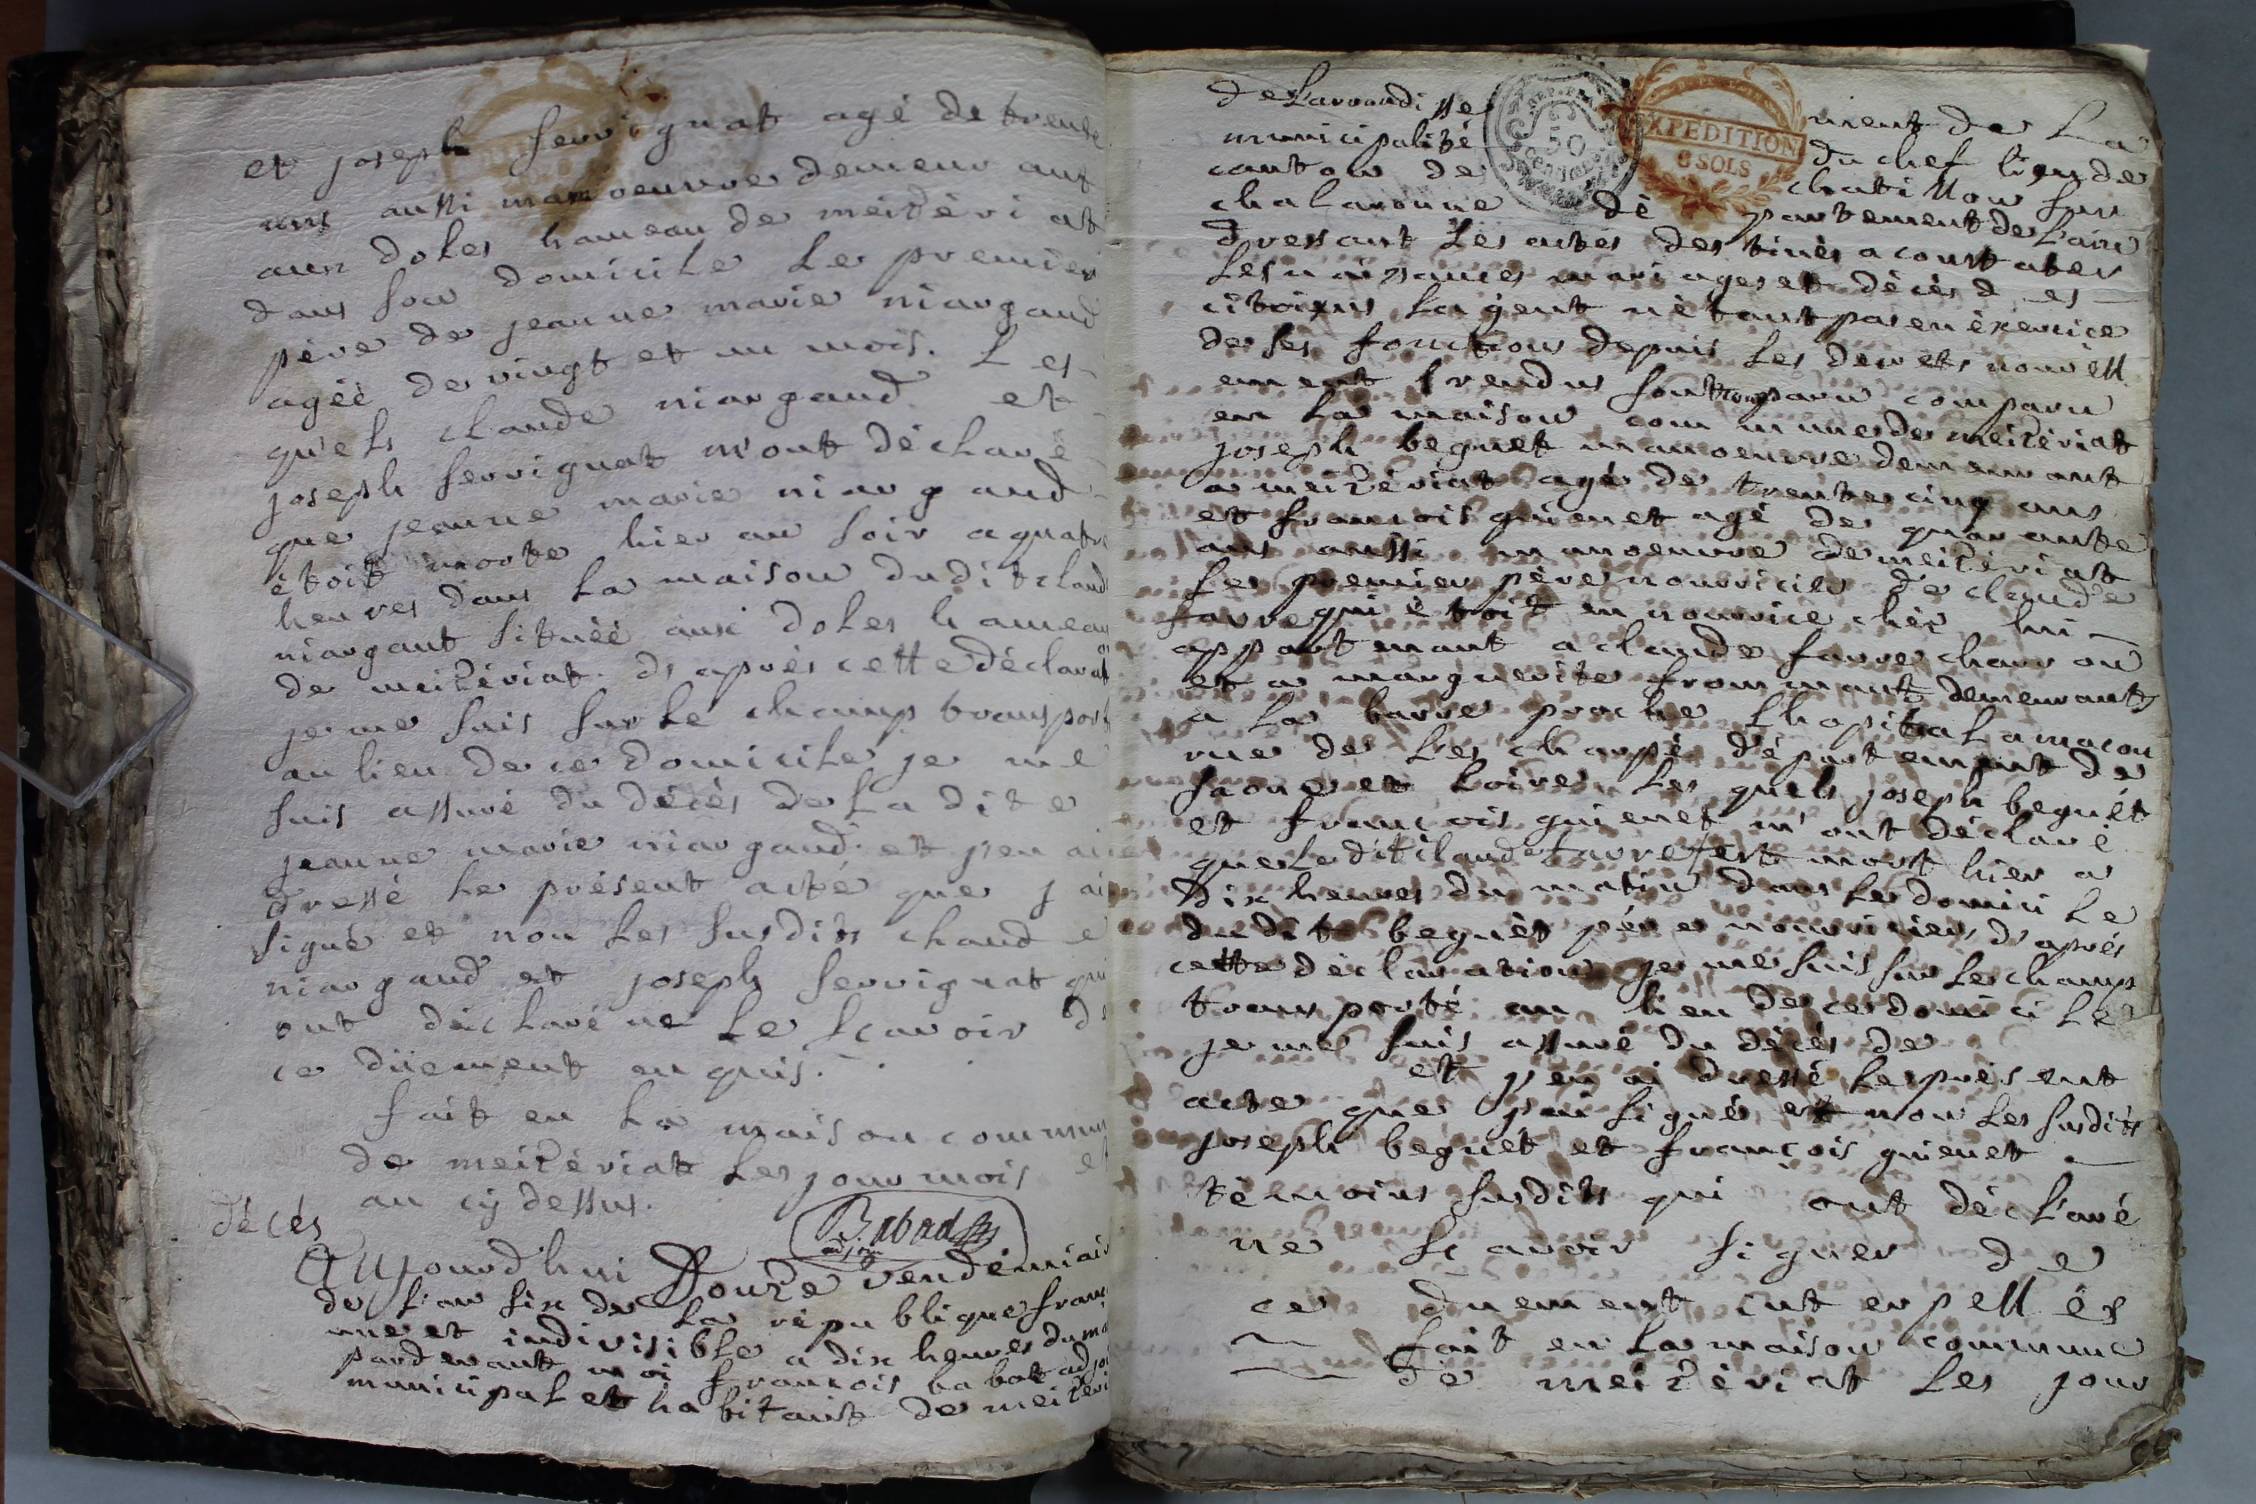 et joseph servignat agé de trente
ans aussi manoeuvre demeurant
aux doles hameau de meizériat
dans son domicile le premier
père de jeanne marie niargaud
agéé de vingt et un mois. Les
quels claude niargaud et
joseph servignat m'ont déclaré
que jeanne marie niargaud
étoit morte hier au soir a quatre
heures dans la maison dudit claud
niargaut situéé aux doles hameau
de meizériat. d'après cette déclarat
je me suis sur le champ transport
au lieu de ce domicile je me
suis assuré du décès de la dite
jeanne marie niargaud et j'en ai
dressé le présent acté que j'ai
signé et non les susdits claude
niargaud et joseph servignat qui
ont déclaré ne le scavoir de
ce düement enquis.
fait en la maison commun
de meizériat les jour mois et
an cÿ dessus.
B. abad
adjoin
décés
Aujourd'hui Douze vendémiair
de l'an six de la république fran
une et indivisible a dix heures du ma
pardevant moi françois babat adjoi
municipal et habitant de meizéri
de Larrondisse ment de La
municipalité du chef lieu de
canton de chatillon sur
chalaronne dé partement de L'ain
dressant les actes destinés a constater
les naissances mariages et décès des
citoiens lagent nétant pas en éxercice
de ses fonctions depuis les decrets nouvell
ement rendus sont comparu
en la maison commune de meizériat
joseph beguet manoeuvre demeurant
a meizériat agé de trente cinq ans
et françois guienet agé de quarante
ans aussi manoeuvre de meizériat
Le premier père nourricier de claude
favre qui étoit en nourrice chéz lui
appartenant a claude favre charron
et a marguerite fromant demeurant
a la barre proche lhopital a macon
rue de departement de
saone et loire Les quels joseph beguét
et françois guienet m'ont déclaré
que le dit claude favre est mort hier a
dix heures du matin dans le domicile
dudit beguét père nourricier, d'aprés
cette déclaration je me suis sur le champ
transporté au lieu de ce domicile
je me suis assuré du décés de
et j'en ai dressé le présent
acte que j'ai signé et non les susdits
joseph beguét et françois guienet
témoins susdits qui ont déclaré
ne scavoir signer de
ce duement interpellés
fait en la maison commune
de meizériat les jour
50
CENTIMES
EXPEDITION
6 SOLS